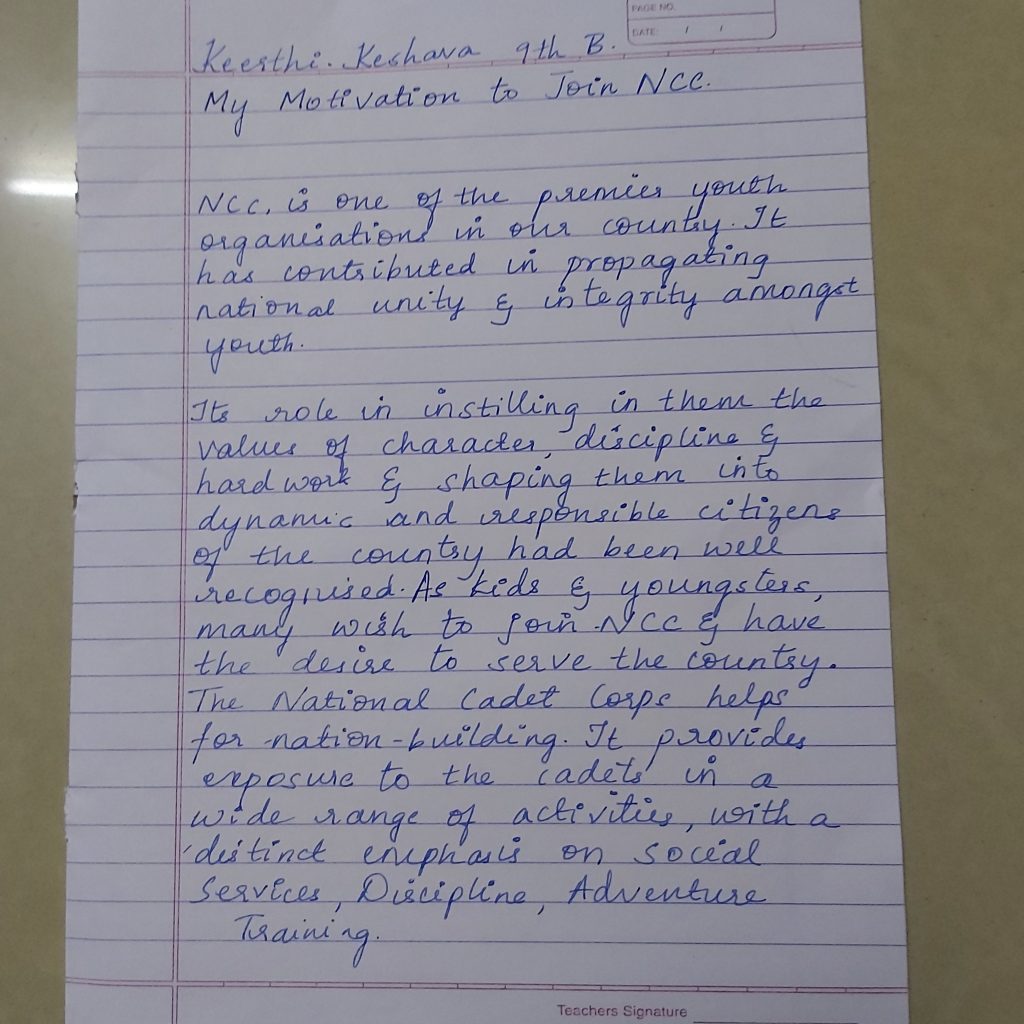 PAGE NO.
DATE: / /
Keerthi. Keshava 9th B.
My Motivation to Join NCC.
NCC, is one of the premier youth
organisations in our country. It
has contributed in propagating
national unity & integrity amongst
youth.
Its role in instilling in them the
values of character, discipline &
hard work & shaping them into
dynamic and responsible citizens
of the country had been well
recognised. As kids & youngsters,
many wish to join NCC & have
the desire to serve the country.
The National Cadet Corps helps
for nation-building. It provides
exposure to the cadets in a
wide range of activities, with a
distinct emphasis on Social
Services, Discipline, Adventure
Training.
Teachers Signature